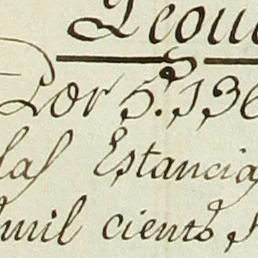 Por 5.136
las Estancia
mil ciento